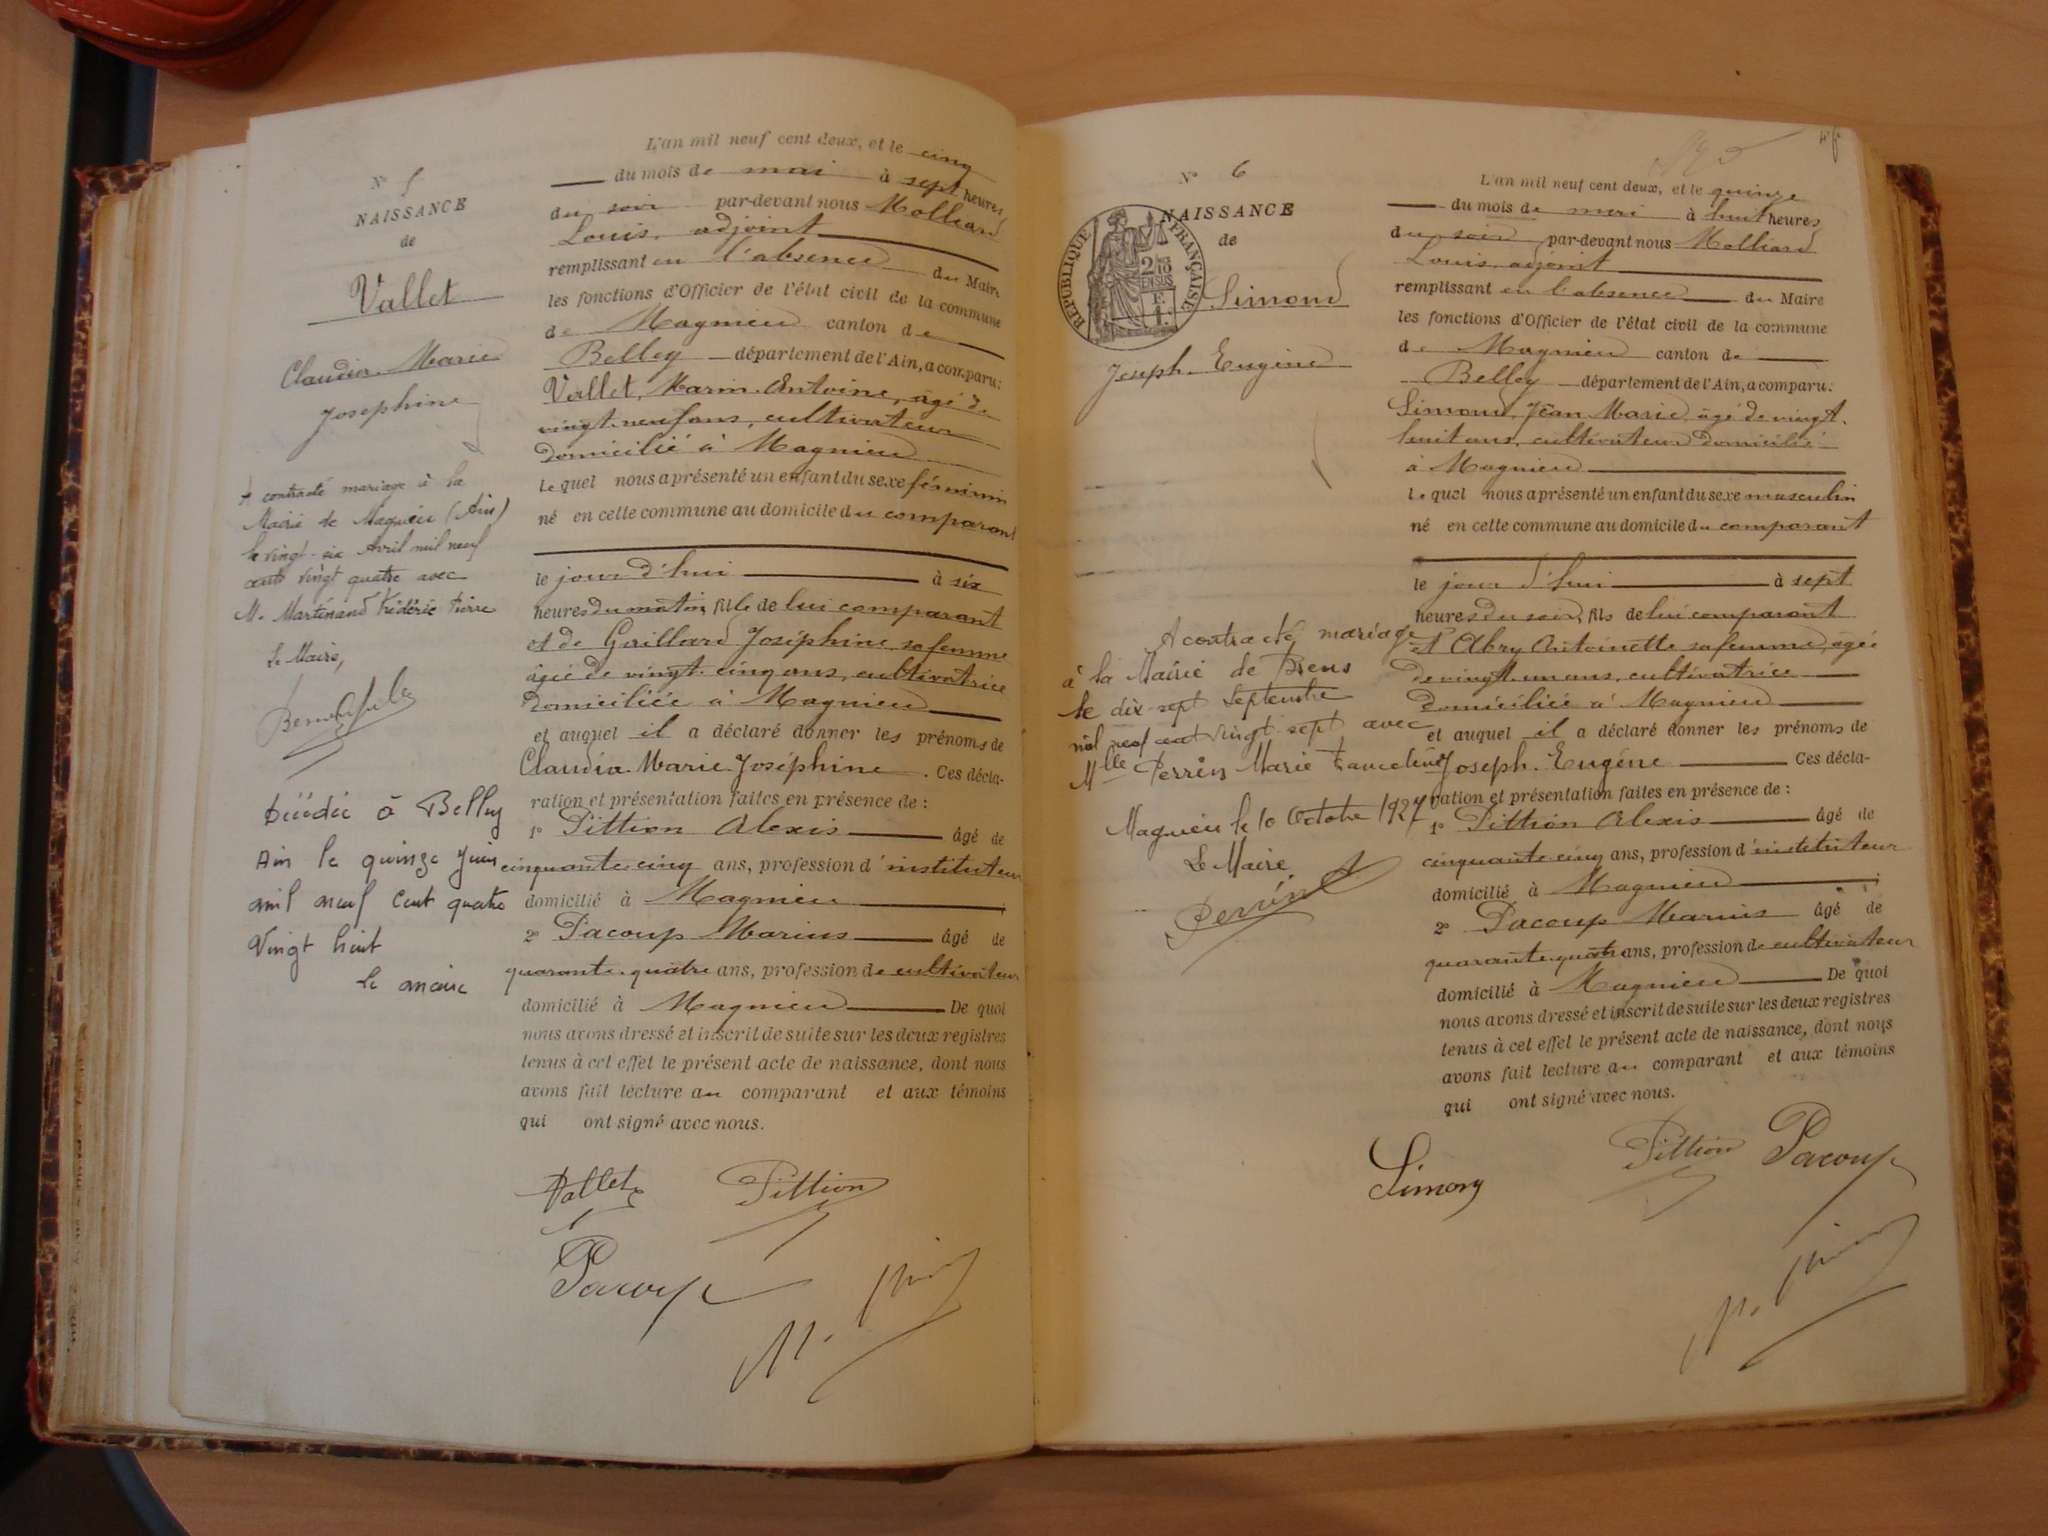 N° 5
NAISSANCE
de
Vallet
Claudia Marie
Josephine
A contracté mariage à la
Mairie de Magnieu (Ain)
le vingt-six Avril mil neuf
cent vingt quatre avec
M. Martinand Frédéric Pierre
Le Maire,
Décédée à Belley
Ain le quinze Juin
mil neuf cent quatre
vingt huit
le maire
L'an mil neuf cent deux, et le cinq
du mois de mai à sept heures
du soir par-devant nous Molliard
Louis, adjoint
remplissant en l'absence du Maire
les fonctions d'Officier de l'état civil de la commune
de Magnieu canton de
Belley département de l'Ain, a comparu:
Vallet, Marin Antoine, âgé de
vingt-neuf ans, cultivateur
domicilié à Magnieu
lequel nous a présenté un enfant du sexe féminin
né en cette commune au domicile du comparant
le jour d'hui à six
heures du matin, fille de lui comparant
et de Gaillard Joséphine, sa femme
âgée de vingt-cinq ans, cultivatrice
domiciliée à Magnieu
et auquel il a déclaré donner les prénoms de
Claudia Marie Joséphine. Ces décla-
ration et présentation faites en présence de :
1° Pittion Alexis âgé de
cinquante-cinq ans, profession d'instituteur
domicilié à Magnieu
2° Pacoup Marius âgé de
quarante-quatre ans, profession de cultivateur
domicilié à Magnieu De quoi
nous avons dressé et inscrit de suite sur les deux registres
tenus à cet effet le présent acte de naissance, dont nous
avons fait lecture au comparant et aux témoins
qui ont signé avec nous.
Vallet Pittion
Pacoup
N° 6
NAISSANCE
de
RÉPUBLIQUE FRANÇAISE
2/10
EN SUS
F.
1.
Simond
Joseph Eugène
A contracté mariage
à la Mairie de Brens
le dix-sept Septembre
mil neuf cent vingt-sept avec
Mlle Perrin Marie
Magnieu le 10 Octobre 1927
Le Maire
Perrin
L'an mil neuf cent deux, et le quinze
du mois de mai à huit heures
du soir par-devant nous Molliard
Louis, adjoint
remplissant en l'absence du Maire
les fonctions d'Officier de l'état civil de la commune
de Magnieu canton de
Belley département de l'Ain, a comparu:
Simond, Jean Marie âgé de vingt-
huit ans, cultivateur domicilié
à Magnieu
lequel nous a présenté un enfant du sexe masculin
né en cette commune au domicile du comparant
le jour d'hui à sept
heures du soir, fils de lui comparant
et Abry Antoinette sa femme, âgée
de vingt-un ans, cultivatrice
domiciliée à Magnieu
et auquel il a déclaré donner les prénoms de
Joseph Eugène Ces décla-
ration et présentation faites en présence de :
1° Pittion Alexis âgé de
cinquante-cinq ans, profession d'instituteur
domicilié à Magnieu
2° Pacoup Marius âgé de
quarante-quatre ans, profession de cultivateur
domicilié à Magnieu De quoi
nous avons dressé et inscrit de suite sur les deux registres
tenus à cet effet le présent acte de naissance, dont nous
avons fait lecture au comparant et aux témoins
qui ont signé avec nous.
Simond Pittion Pacoup